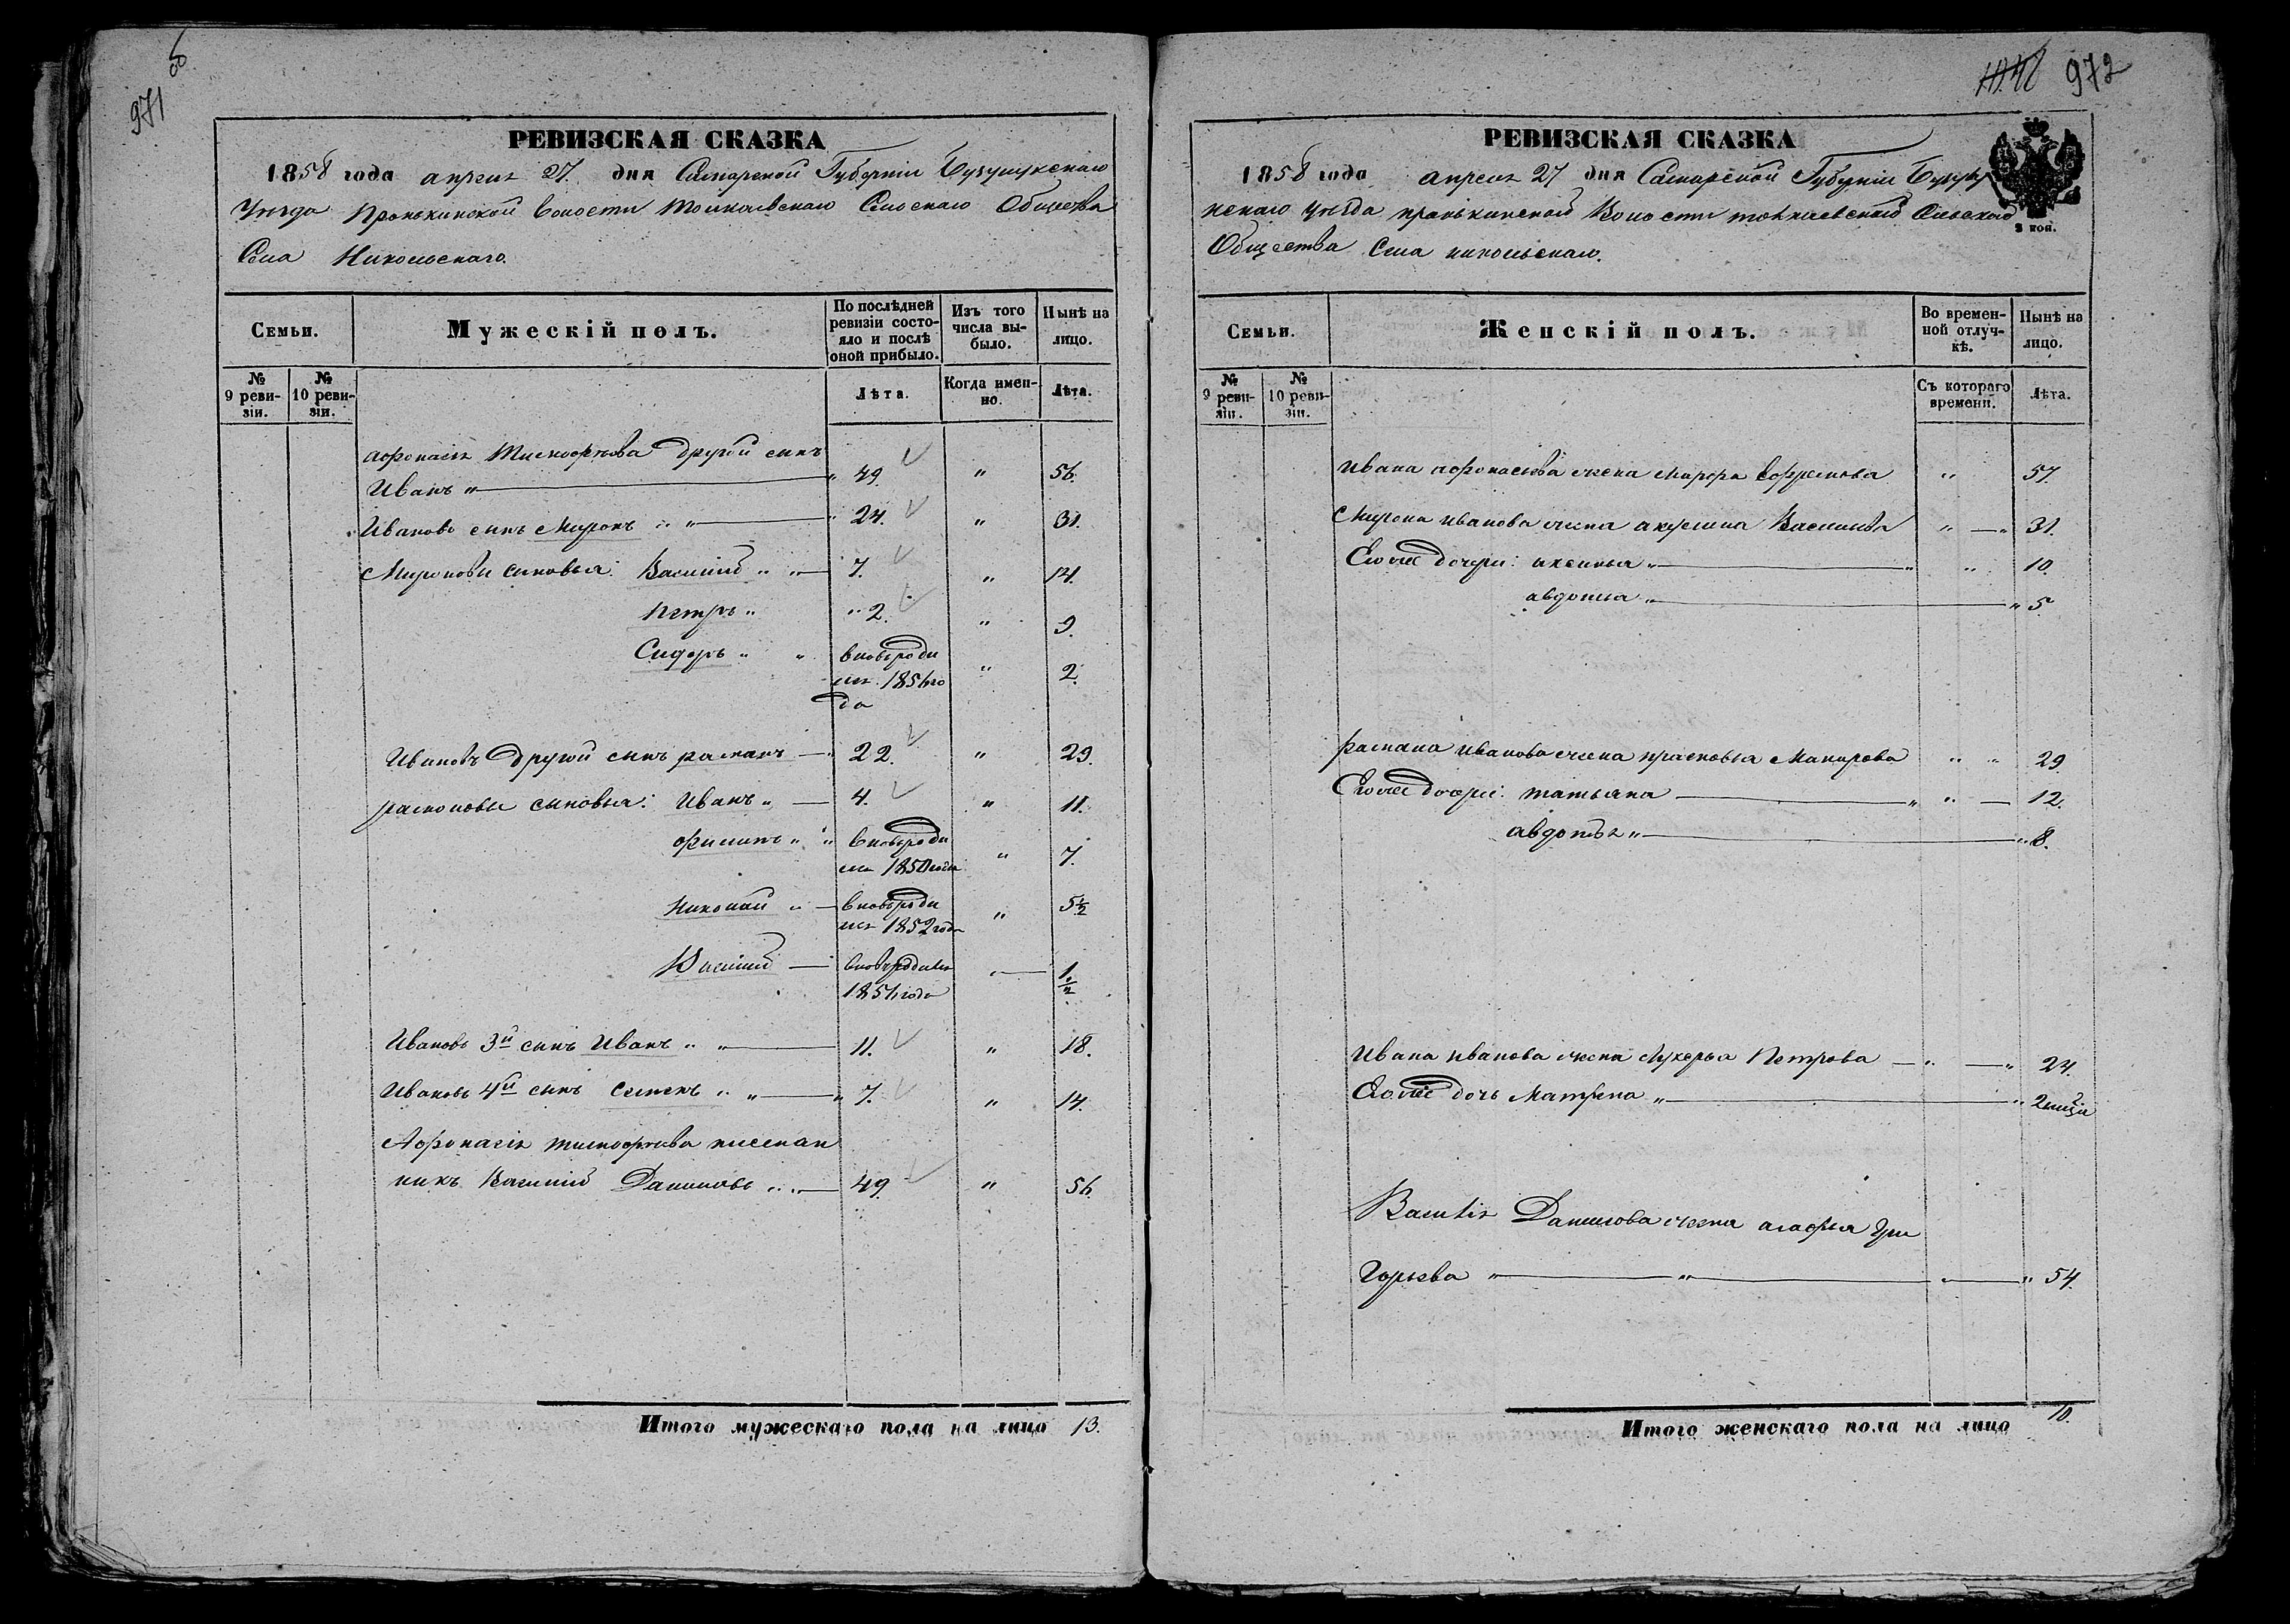 971 об
РЕВИЗСКАЯ СКАЗКА
1858 года апреля 27. дня Самарской Губерніи Бузулукскаго
Уезда Пронькинской Волости Толкаевскаго Сельскаго Общества
Села Никольскаго.
Семьи.
Мужескій полъ.
По послѣдней ревизіи состояло и послѣ оной прибыло.
Изъ того числа выбыло.
Нынѣ на лицо.
№ 9 ревизіи.
№ 10 ревизіи.
Лѣта.
Когда именно.
Лѣта.
Афонасія Тимофѣева другой сынъ
Иванъ " " 49. " 56.
Ивановъ сынъ Миронъ " " " 24. " 31.
Мироновы сыновья: Василий " " 7. " 14.
Петръ " " 2. " 9.
Сидоръ " " вновь роди
лся 1856 го " 2.
да
Ивановъ другой сынъ романъ " 22. " 29.
романовы сыновья: Иванъ " 4. " 11.
филипъ " " вновь роди
лся 1850 года " 7.
Николай " вновь роди
лся 1852 года " 5½
Василий вновь родился
1856 года " 1½
Ивановъ 3й сынъ Иванъ " " 11. " 18.
Ивановъ 4й сынъ семенъ " " " 7. " 14.
Афонасія тимофѣева племян
никъ Василий Даниловъ " " 49. " 56.
Итого мужескаго пола на лицо 13.
972
РЕВИЗСКАЯ СКАЗКА
3 коп.
1858 года апреля 27 дня Самарской Губерніи Бузулу
кскаго уезда пронькинской Волости толкаевскаго Сельскаго
Общества Села никольскаго.
Семьи.
Женскій полъ.
Во временной отлучкѣ.
Нынѣ на лицо.
№ 9 ревизіи.
№ 10 ревизіи.
Съ котораго времени.
Лѣта.
Ивана афонасьева жена Марфа Ефремова " 57.
Мирона иванова жена акулина Васильева " " 31.
Еголее дочери: аксинья " " " 10.
авдотья " " 5.
романа иванова жена прасковья Макарова " " 29.
Еголее дочери: татьяна " " 12.
авдотья " " 8.
Ивана иванова жена Лукерья Петрова " " 24.
Еголее дочь Матрена " " 2 мѣсяца
Василія Данилова жена агафья Гри
горьева " " " " 54.
Итого женскаго пола на лицо 10.